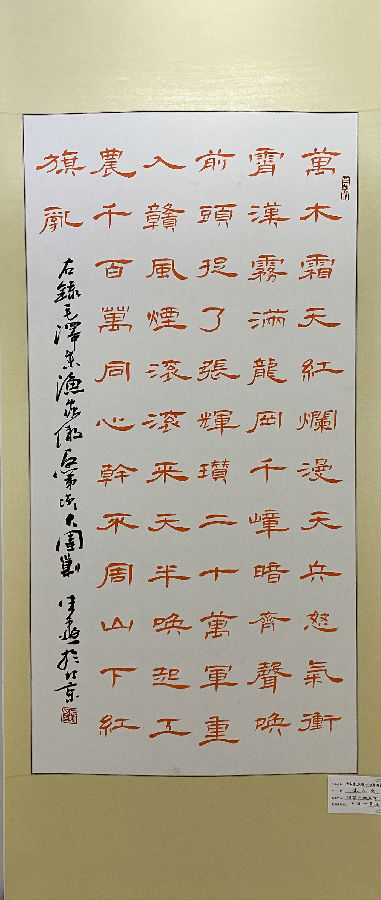 萬木霜天紅爛漫天兵怒氣衝
霄漢霧滿龍岡千嶂暗齊聲喚
前頭捉了張輝瓚二十萬軍重
入贛風煙滾滾來天半喚起工
農千百萬同心幹不周山下紅
旗亂
右錄毛澤東漁家傲反第一次大圍剿 於北京